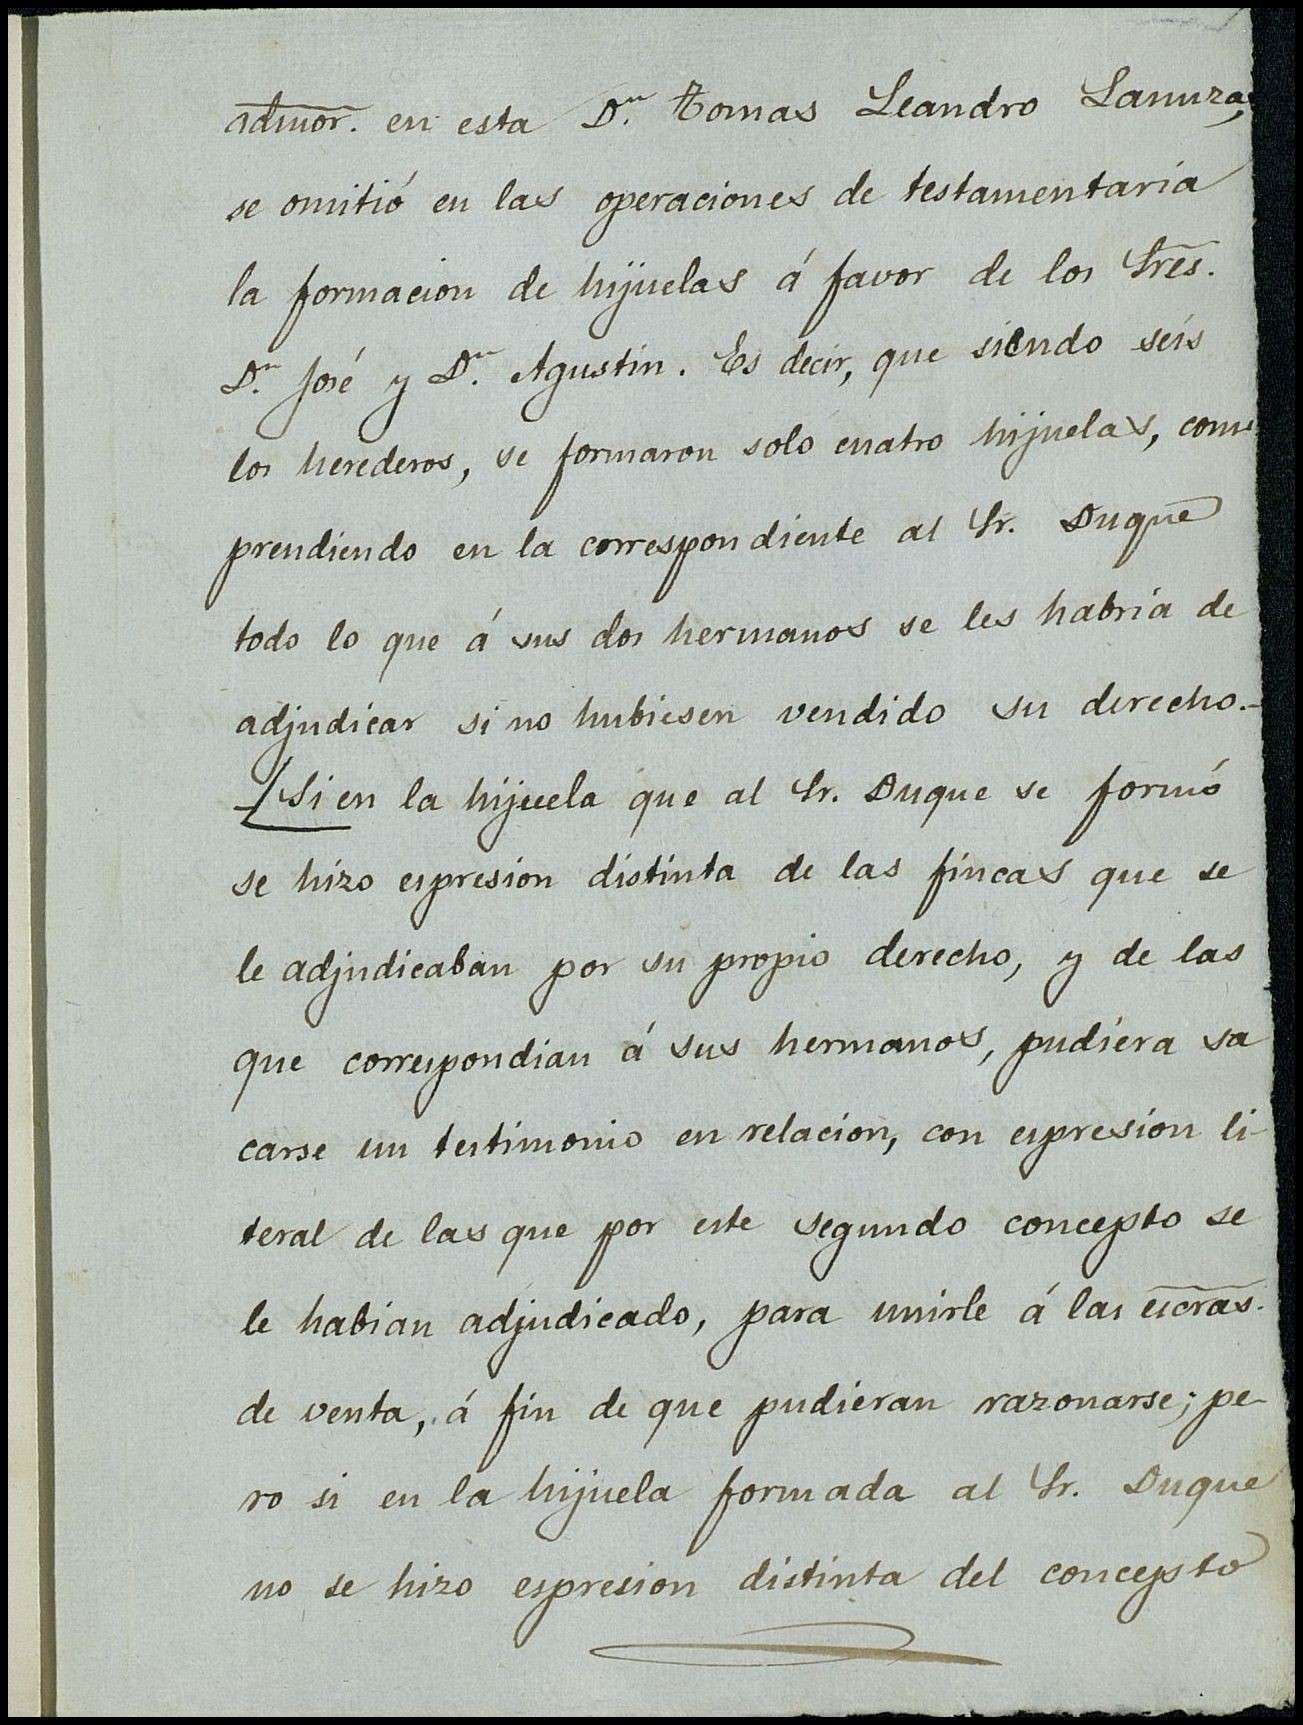 admor. en esta Dn. Tomas Leandro Lanuza,
se omitió en las operaciones de testamentaría
la formacion de hijuelas á favor de los Sres.
Dn. José y Dn. Agustin. Es decir, que siendo seis
los herederos, se formaron solo cuatro hijuelas, com-
prendiendo en la correspondiente al Sr. Duque
todo lo que á sus dos hermanos se les habria de
adjudicar si no hubiesen vendido su derecho.-
Si en la hijuela que al Sr. Duque se formó
se hizo espresion distinta de las fincas que se
le adjudicaban por su propio derecho, y de las
que correspondian á sus hermanos, pudiera sa
carse un testimonio en relacion, con espresion li-
teral de las que por este segundo concepto se
le habian adjudicado, para unirle á las escras.
de venta, á fin de que pudieran razonarse; pe-
ro si en la hijuela formada al Sr. Duque
no se hizo espresion distinta del concepto